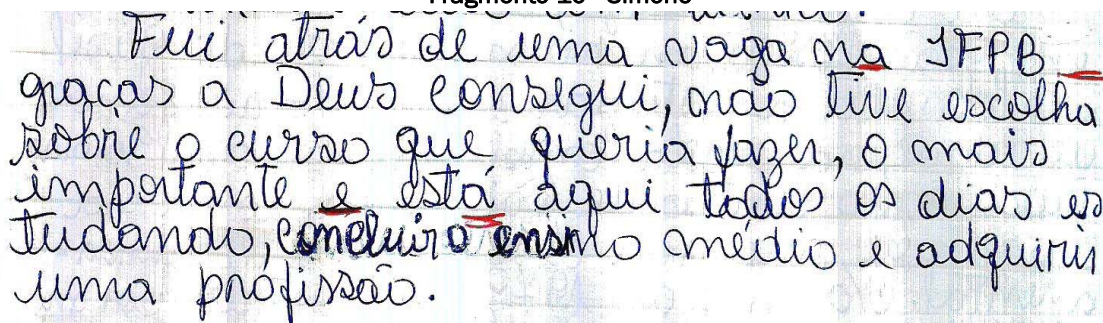 Fui atrás de uma vaga na IFPB
graças a Deus consegui, não tive escolha
sobre o curso que queria fazer, o mais
importante e está aqui todos os dias es
tudando, concluir o ensino médio e adquirir
uma profissão.